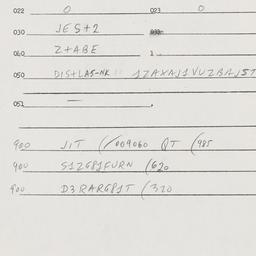 022 0 023 0
030 JES+2
060 Z+ABE 1
050 DIS+LAS-NK 1ZAXAJ1VUZBAJ5T
051 —
900 JIT (/009060 QT (985
900 S1ZG81FURN (620
900 D3RARG81T (320